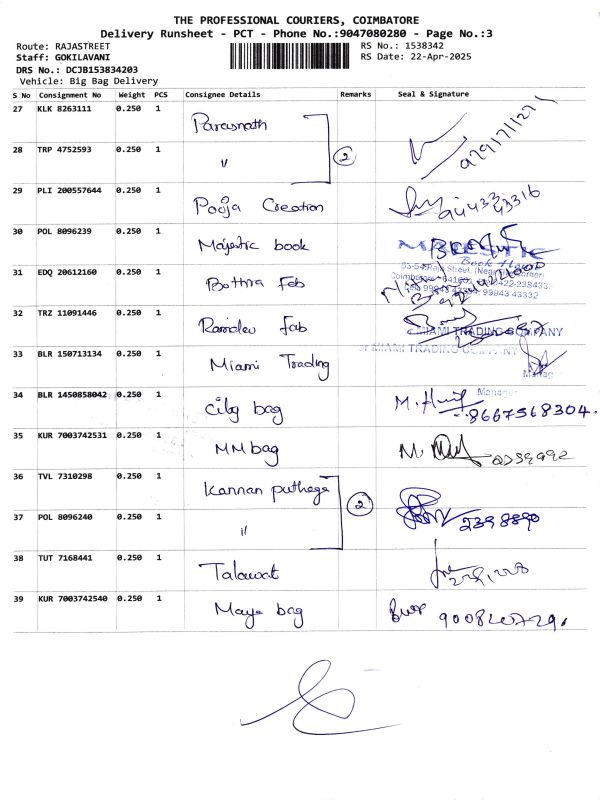 THE PROFESSIONAL COURIERS, COIMBATORE
Delivery Runsheet - PCT - Phone No.:9047080280 - Page No.:3
Route: RAJASTREET RS No.: 1538342
Staff: GOKILAVANI RS Date: 22-Apr-2025
DRS No.: DCJB153834203
Vehicle: Big Bag Delivery
S No Consignment No Weight PCS Consignee Details Remarks Seal & Signature
27 KLK 8263111 0.250 1 Parasnath
28 TRP 4752593 0.250 1 " 2
29 PLI 200557644 0.250 1 Pooja Creation
30 POL 8096239 0.250 1 Majestic book
31 EDQ 20612160 0.250 1 Bothra Fab
32 TRZ 11091446 0.250 1 Ramdev fab
MIAMI TRADING COMPANY
33 BLR 150713134 0.250 1 Miami Trading
MIAMI TRADING COMPANY
Manager
34 BLR 1450858042 0.250 1 City bag M. 8667568304.
Manager
35 KUR 7003742531 0.250 1 MM bag M.
36 TVL 7310298 0.250 1 Kannan puthaga
37 POL 8096240 0.250 1 " 2 2398890
38 TUT 7168441 0.250 1 Talawat
39 KUR 7003742540 0.250 1 Maya bag